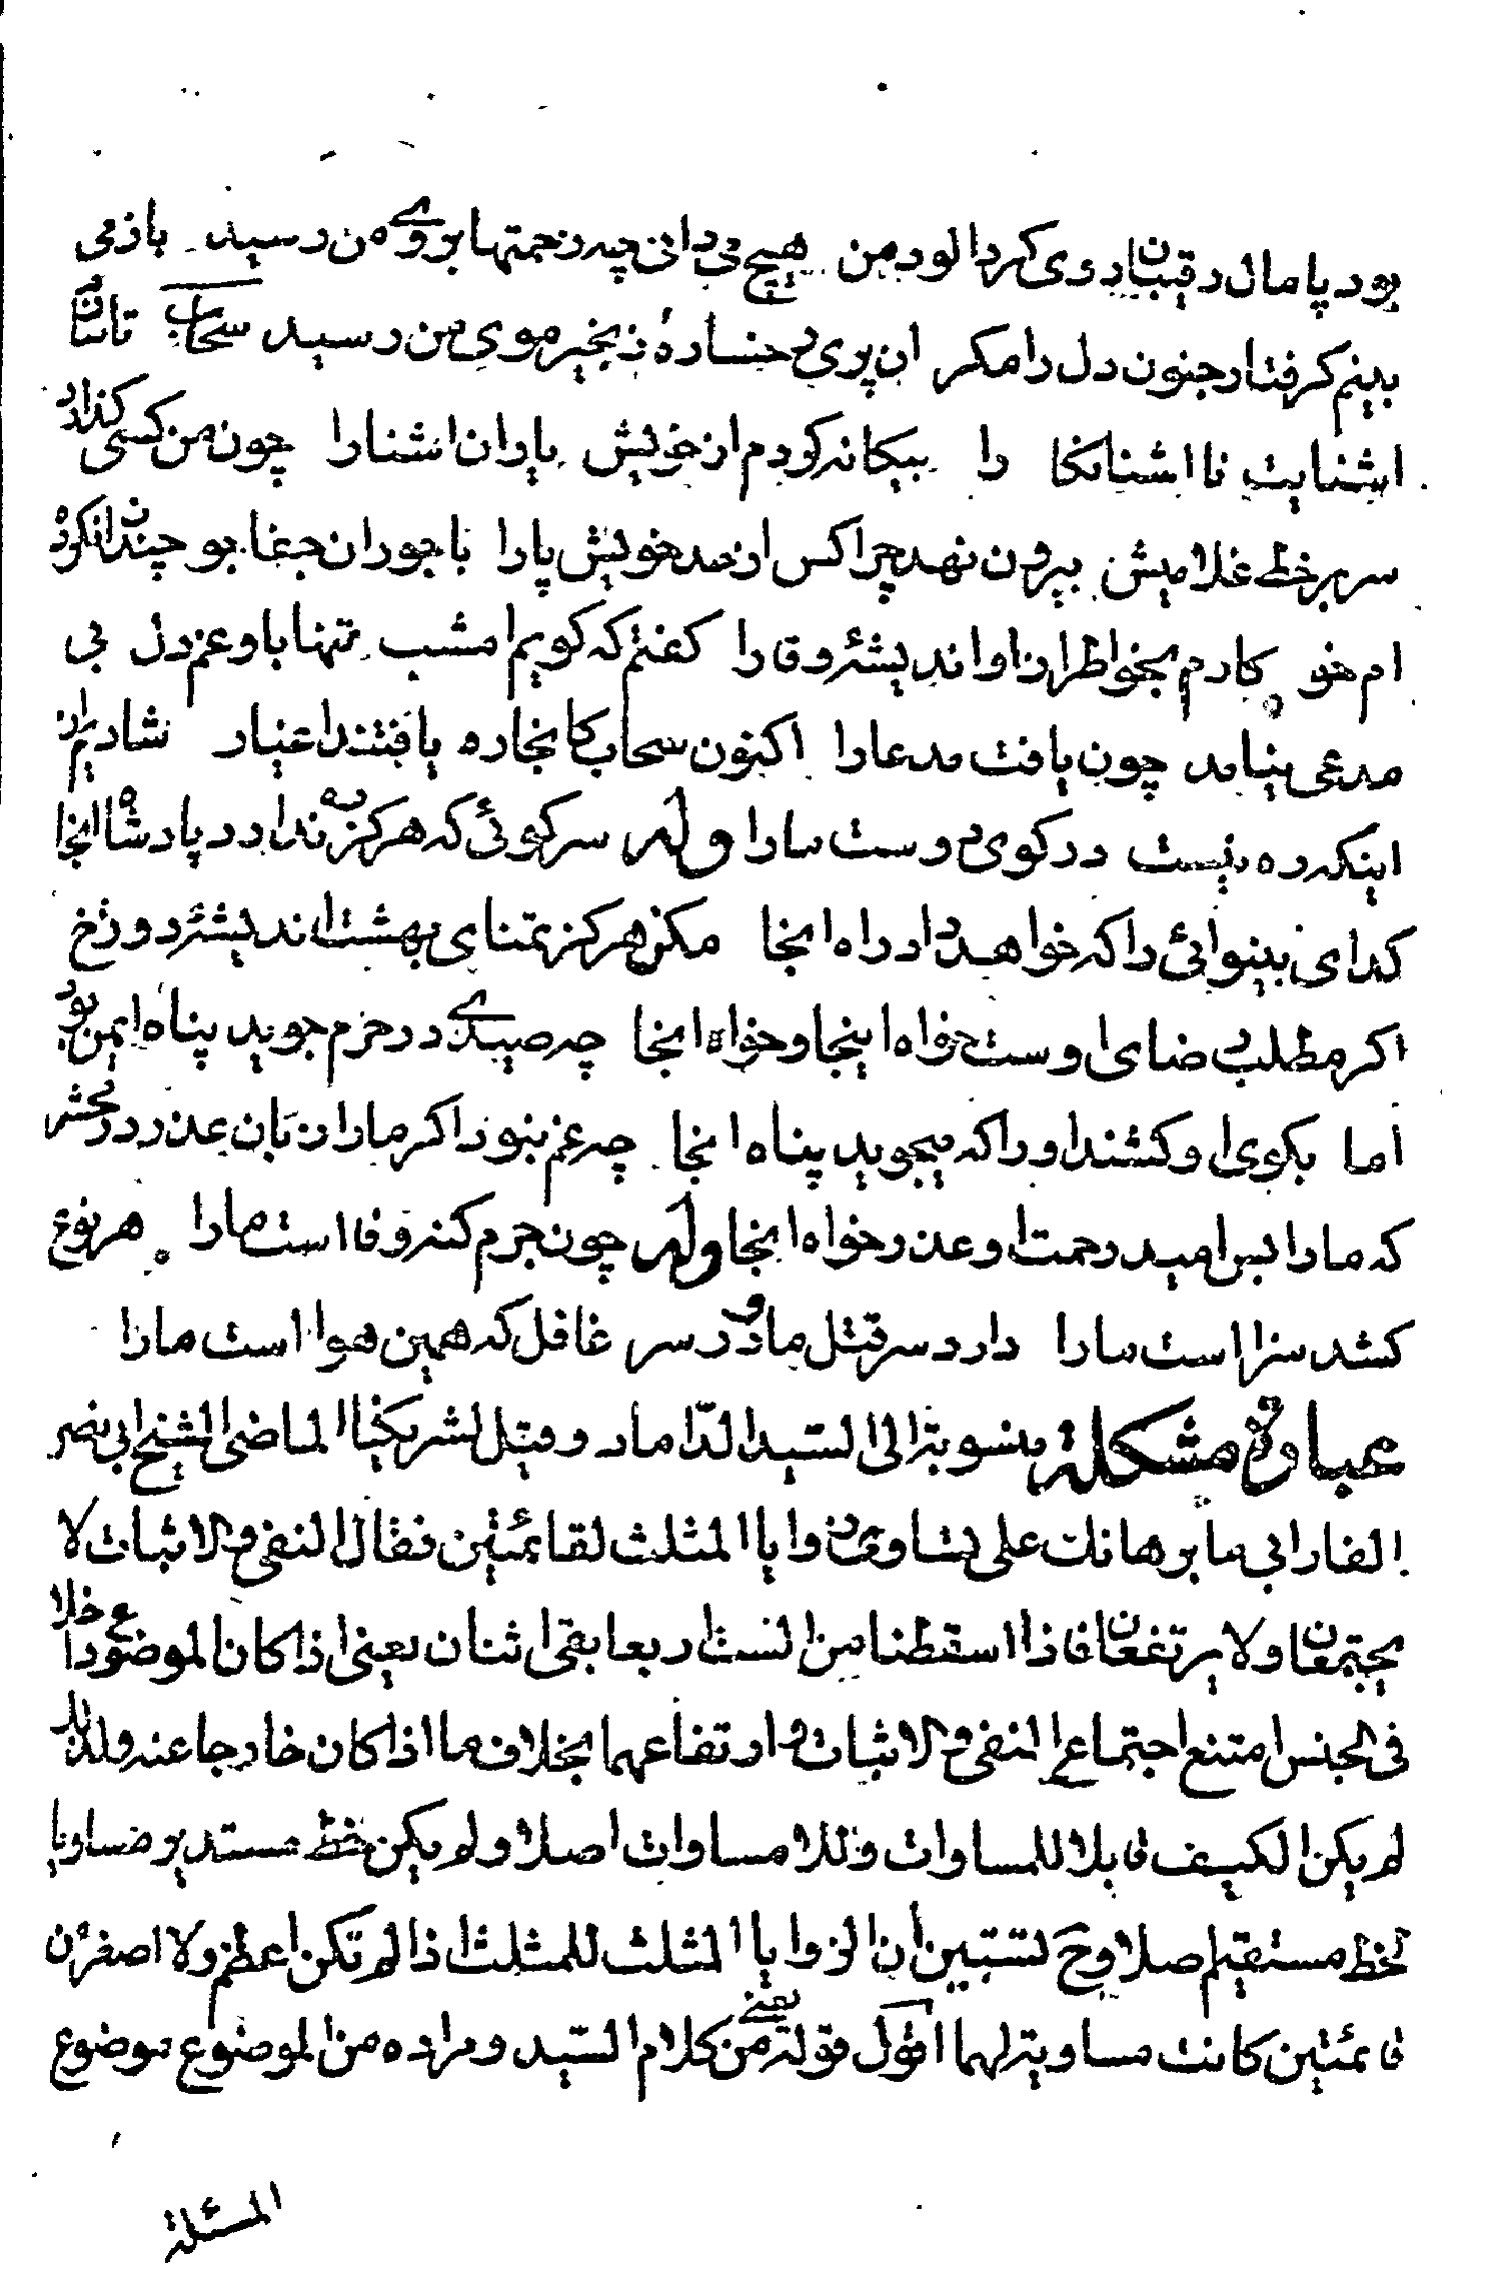 بود پامال رقیبان روی کرد الود من هیچ می دانی چه زحمتها بروی من رسید بازمی
بینم کرفتار جنون دل را مکر ان پری رخساره زنجیر موی من رسید سحاب تا شان
اشنایت نا اشنا نکا را بیکانه کردم از خویش یاران اشنا را چون من کسی کذارد
سر بر خط غلامیش بیرون نهد چرا کس از حد خویش پا را با جور ان جفا جو چندانکرده
ام خو کارم بخواطر از او اندیشهٔ وفا را کفتم که کویم امشب تنها باو غم دل بی
مدعی نیامد چون یافت مدعا را اکنون سحاب کانجا ره یافتند اغیار شادیم از
اینکه ره نیست در کوی دوست ما را وله سر کوئی که هرکز ره ندارد پادشاه انجا
کدای بینوائی را که خواهد داد راه انجا مکن هرکز تمنای بهشت اندیشهٔ دوزخ
اکر مطلب رضای اوست خواه اینجا و خواه انجا چه صیدی در حرم جوید پناه ایمن بود
اما بکوی او کشند او را که میجوید پناه انجا چه غم نبود اکر ما را زبان عذر در محشر
که ما را بس امید رحمت او عذر خواه انجا وله چون جرم کنه وفا است ما را هر نوع
کشد سزا است ما را دارد سر قتل ما و در سر غافل که همین هوا است ما را
عبارة مشکلة منسوبة الی السید الداماد و قیل لشریکنا الماضی الشیخ ابی نصر
الفارابی ما برهانک علی تساوی زوایا المثلث لقائمتین فقال النفی و الاثبات لا
یجتمعان و لا یرتفعان فاذا اسقطنا من الست اربعا بقی اثنان یعنی اذا کان الموضوع داخلا
فی الجنس امتنع اجتماع النفی و الاثبات و ارتفاعهما بخلاف ما اذا کان خارجا عنه و لذلک
لم یکن الکیف قابلا للمساوات و للا مساوات اصلا و لم یکن خط مستدیر مساویا
لخط مستقیم اصلا و ح نستبین ان الزوایا المثلث للمثلث اذا لم تکن اعظم و لا اصغر من
قائمتین کانت مساویة لهما اقول قوله یعنی من کلام السید و مراده من الموضوع موضوع
المسئلة